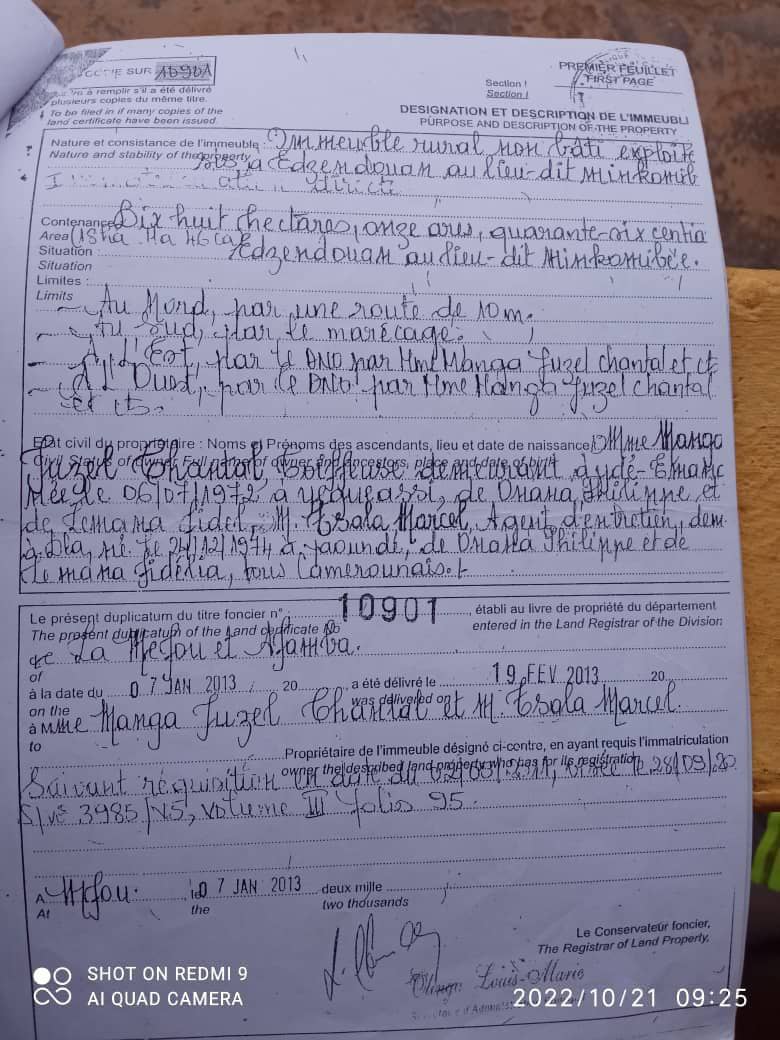 COPIE SUR
PREMIER FEUILLET
FIRST PAGE
à remplir s'il a été délivré
plusieurs copies du même titre.
To be filed in if many copies of the
land certificate have been issued.
Section I
Section I
DESIGNATION ET DESCRIPTION DE L'IMMEUBL
PURPOSE AND DESCRIPTION OF THE PROPERTY
Nature et consistance de l'immeuble : Immeuble rural non bâti exploité
Nature and stability of the property
sis à Edzendouan au lieu-dit Minkomib
Contenance Dix huit hectares, onze ares, quarante-six centia
Area (18ha 11a 46ca)
Situation : Edzendouan au lieu-dit Minkomibée.
Situation
Limites :
Limits
- Au Nord, par une route de 10 m.
- Au Sud, par le marécage.
- A l'Est, par le DNO par Mme Manga Juzel Chantal et ct
- A l'Ouest, par le DNO par Mme Manga Juzel Chantal
et cts.
Etat civil du propriétaire : Noms et Prénoms des ascendants, lieu et date de naissance Mme Manga
Civil Status of owner Full name of owner and ancestors, place and date of birth
Juzel Chantal, Coiffeuse demeurant à ydé-
Née le 06/07/1972 à , de Omana Philippe et
de Lemana Fidel, M. Tsala Marcel, Agent d'entretien, dem.
à Dla, né le 24/12/1974 à yaoundé, de Omana Philippe et de
Lemana Fidélia, tous Camerounais.
Le présent duplicatum du titre foncier n° : 10901 , établi au livre de propriété du département
The present duplicatum of the Land certificate No entered in the Land Registrar of the Division
de La Mefou et Afamba.
of
à la date du 07 JAN 2013 20 a été délivré le 19 FEV 2013 20
on the was delivered on
à Mme Manga Juzel Chantal et M. Tsala Marcel.
to
Propriétaire de l'immeuble désigné ci-contre, en ayant requis l'immatriculation
owner the described land property who has for its registration
Suivant réquisition en date du , visée le 28/09/20
S/N° 3985/N5, volume III folio 95.
A Mefou. le 07 JAN 2013 deux mille
At the two thousands
Le Conservateur foncier,
The Registrar of Land Property,
Louis-Marie
SHOT ON REDMI 9
AI QUAD CAMERA
2022/10/21 09:25